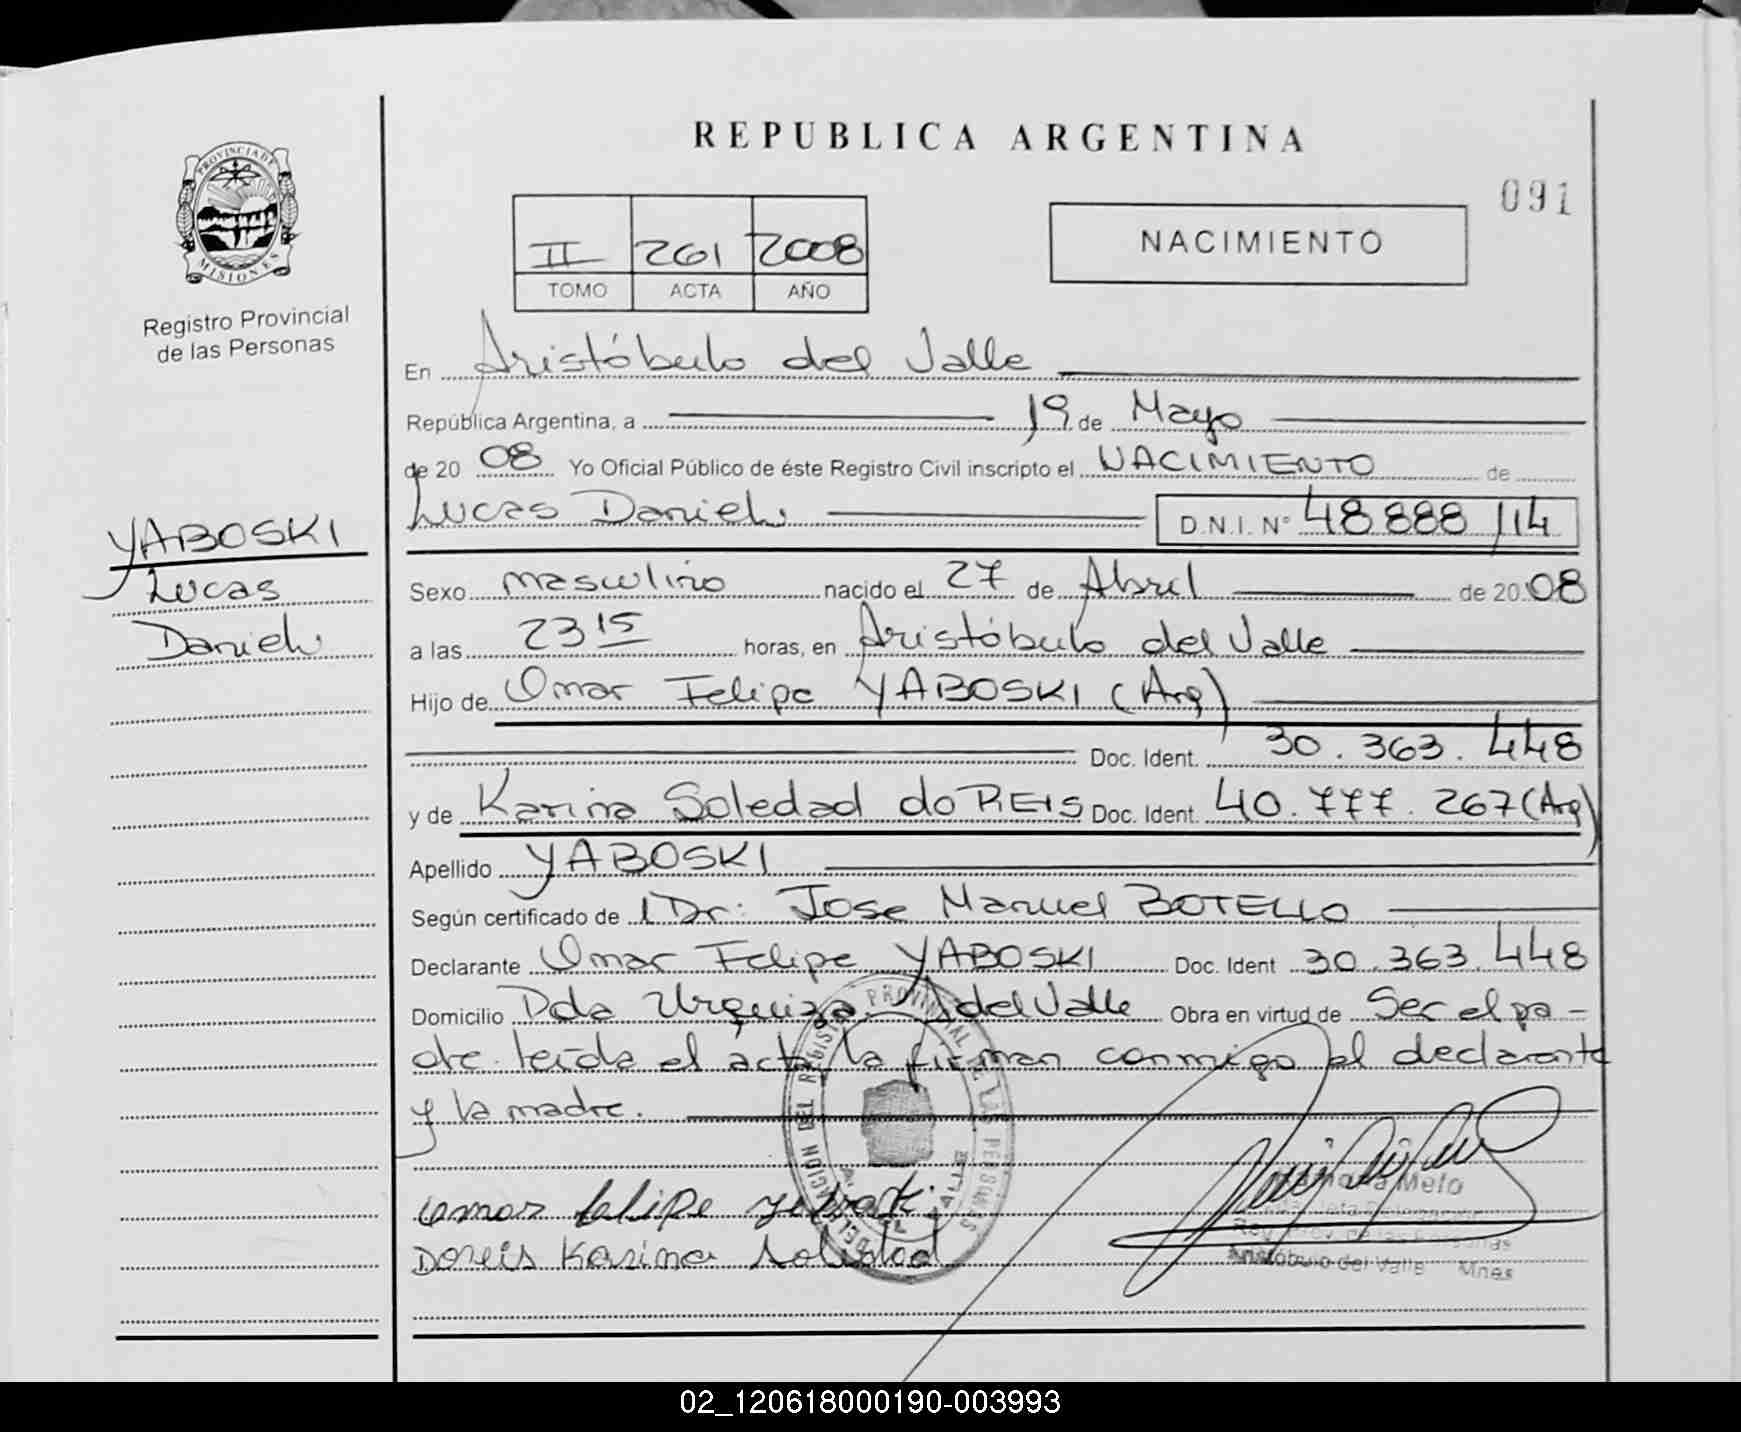 REPUBLICA ARGENTINA
091
PROVINCIA DE
MISIONES
Registro Provincial
de las Personas
II 261 2008
TOMO ACTA AÑO
NACIMIENTO
En Aristóbulo del Valle
República Argentina, a 19 de Mayo
de 20 08 Yo Oficial Público de éste Registro Civil inscripto el NACIMIENTO de
Lucas Daniel D.N.I. N° 48.888.114
YABOSKI
Lucas
Daniel
Sexo masculino nacido el 27 de Abril de 20 08
a las 23 15 horas, en Aristóbulo del Valle
Hijo de Omar Felipe YABOSKI (Arg)
Doc. Ident. 30.363.448
y de Karina Soledad do REIS Doc. Ident. 40.777.267 (Arg)
Apellido YABOSKI
Según certificado de l Dr: Jose Manuel BOTELLO
Declarante Omar Felipe YABOSKI Doc. Ident 30.363.448
Domicilio Pda Urquiza. A del Valle Obra en virtud de Ser el pa-
dre. leída el acta la firman conmigo el declarante
y la madre.
DELEGACION DEL REGISTRO PROVINCIAL DE LAS PERSONAS
A. DEL VALLE
Omar felipe yaboski
Doreis Karina Soledad
Melo
Reg. Prov. de las Personas
Aristóbulo del Valle Mnes
02_120618000190-003993